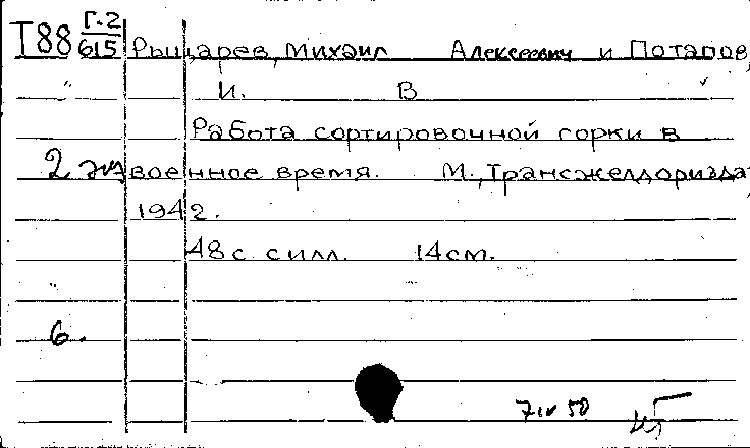 Т88 Г.2/615 Рыцарев, Михаил Алексеевич и Потапов,
И. В
Работа сортировочной горки в
2 экз военное время. М., Трансжелдориздат
1942.
48 с. с илл. 14 см.
6.
7 IV 50